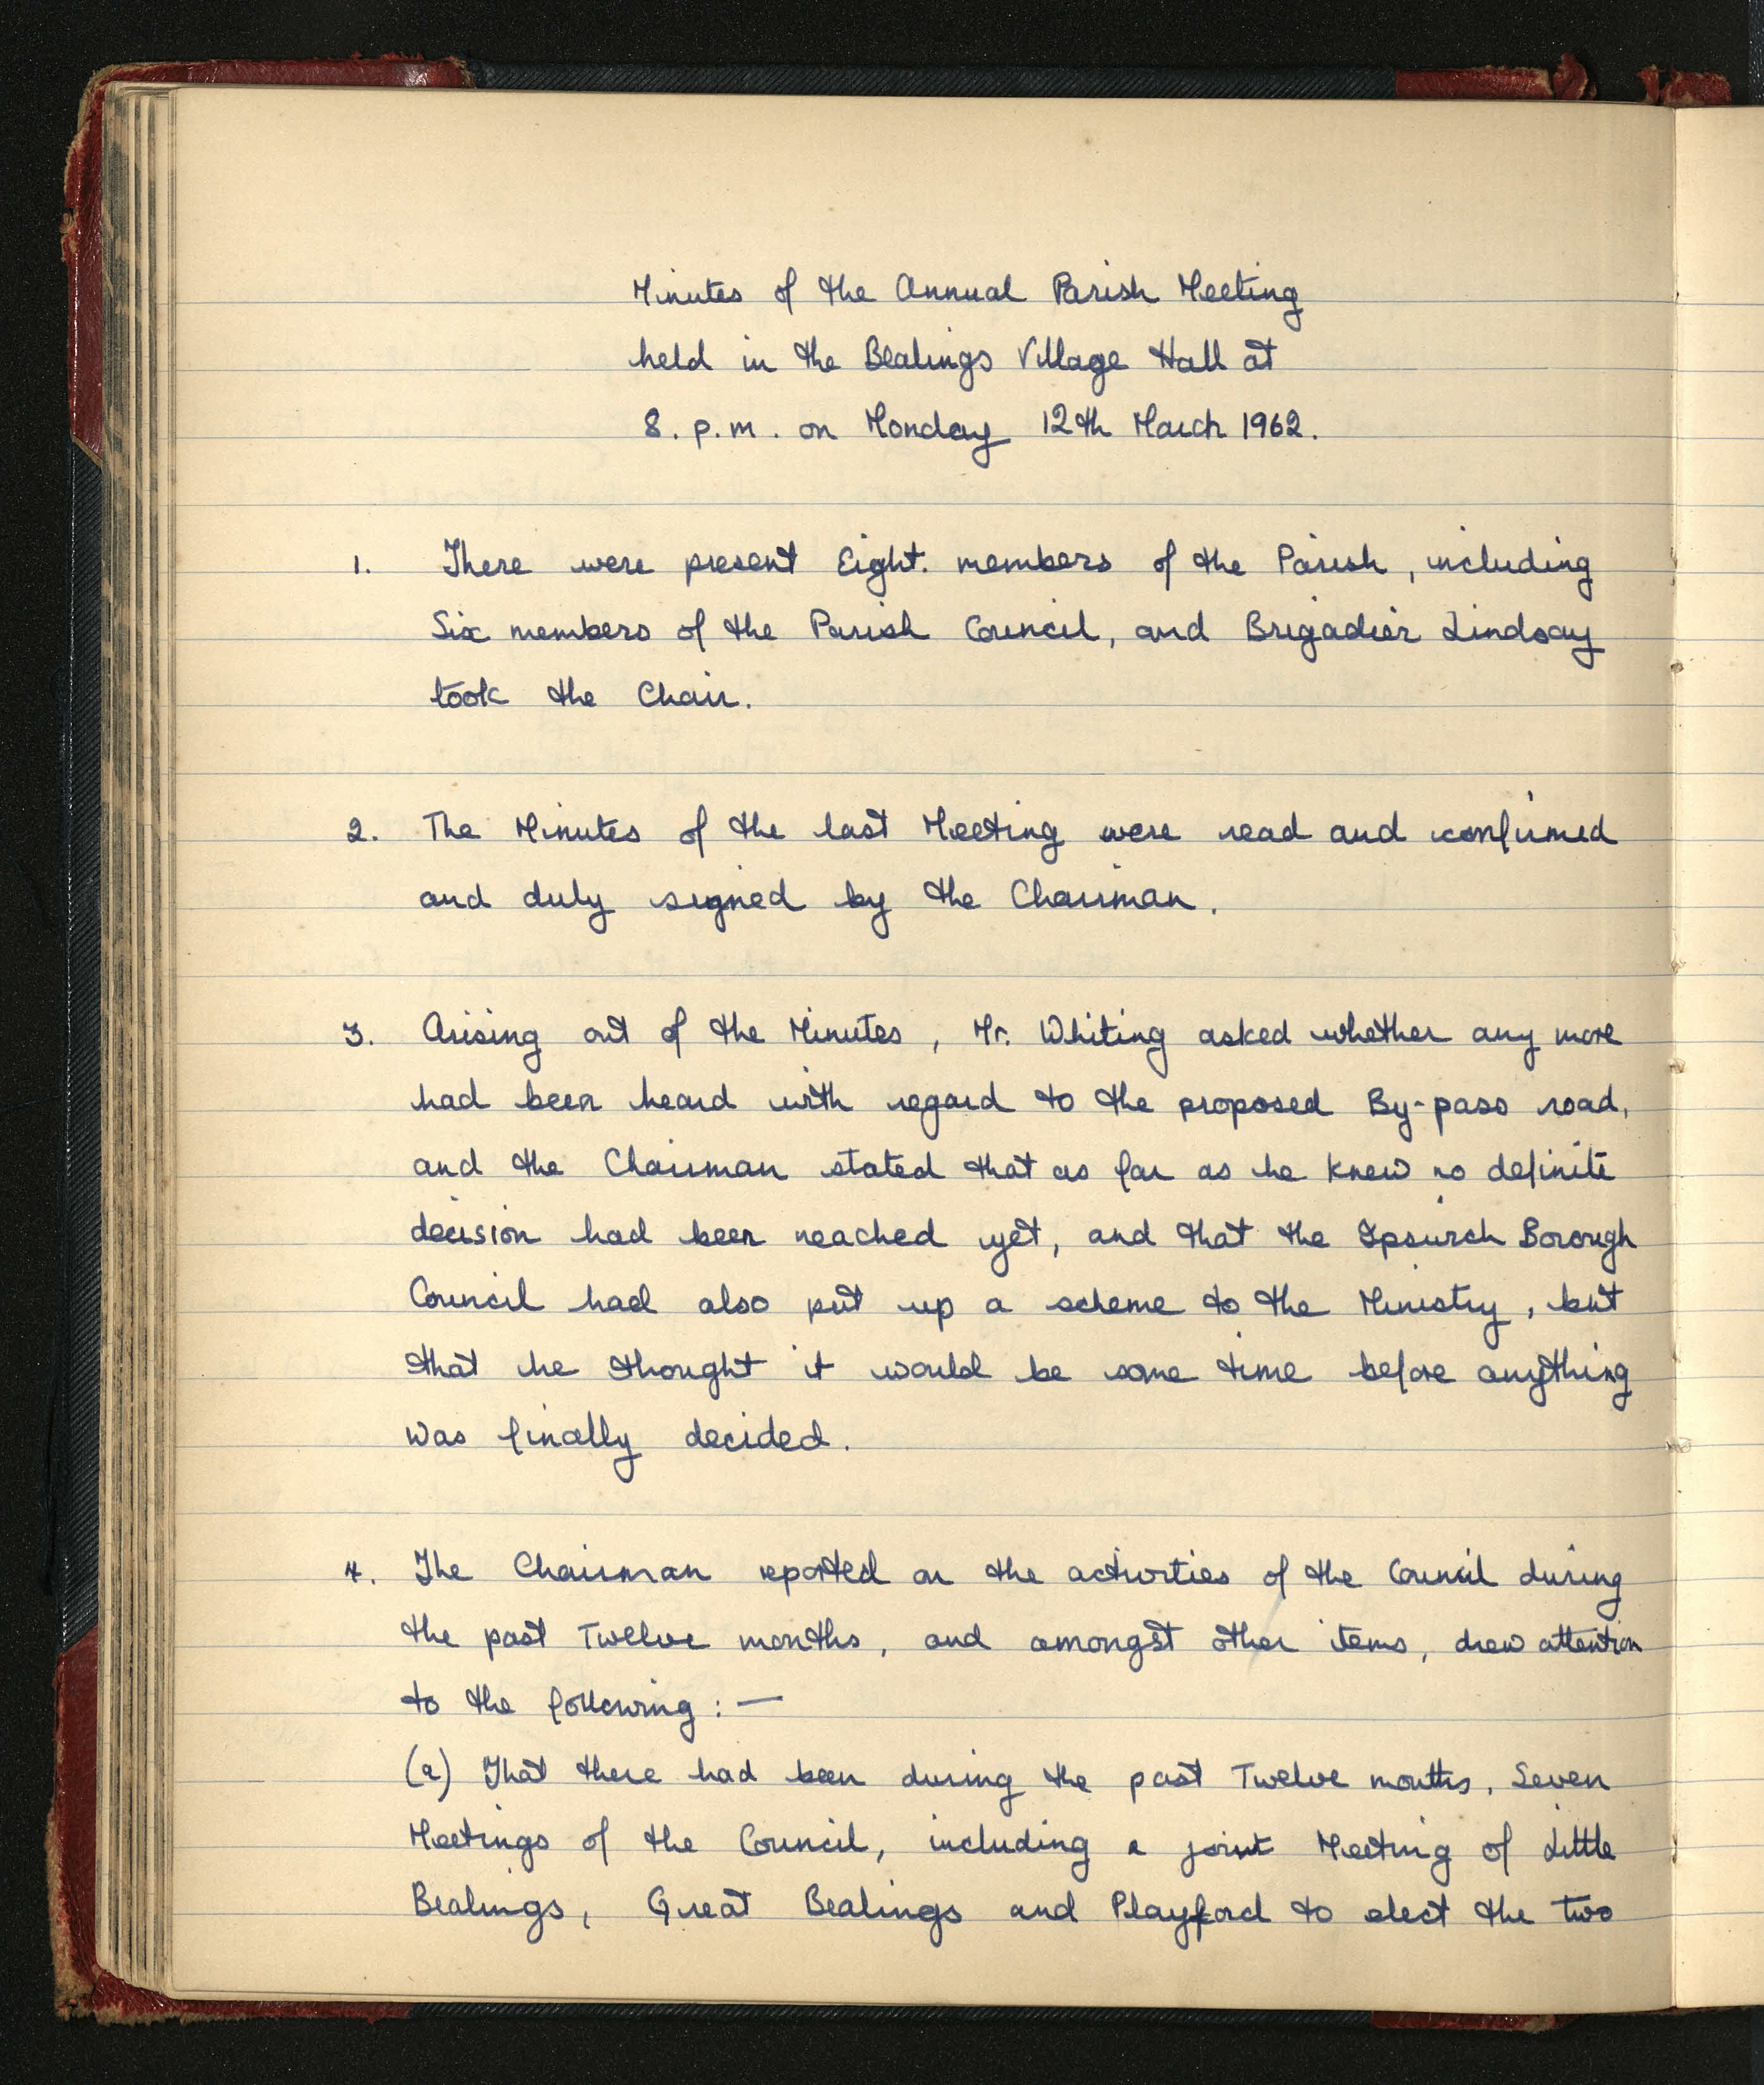 Minutes of the Annual Parish Meeting
held in the Bealings Village Hall at
8. p.m. on Monday 12th March 1962.
1. There were present Eight. members of the Parish, including
Six members of the Parish Council, and Brigadier Lindsay
took the Chair.
2. The Minutes of the last Meeting were read and confirmed
and duly signed by the Chairman.
3. Arising out of the Minutes, Mr. Whiting asked whether any more
had been heard with regard to the proposed By-pass road,
and the Chairman stated that as far as he knew no definite
decision had been reached yet, and that the Ipswich Borough
Council had also put up a scheme to the Ministry, but
that he thought it would be some time before anything
was finally decided.
4. The Chairman reported on the activities of the Council during
the past Twelve months, and amongst other items, drew attention
to the following:—
(a) That there had been during the past Twelve months, Seven
Meetings of the Council, including a joint Meeting of Little
Bealings, Great Bealings and Playford to elect the two